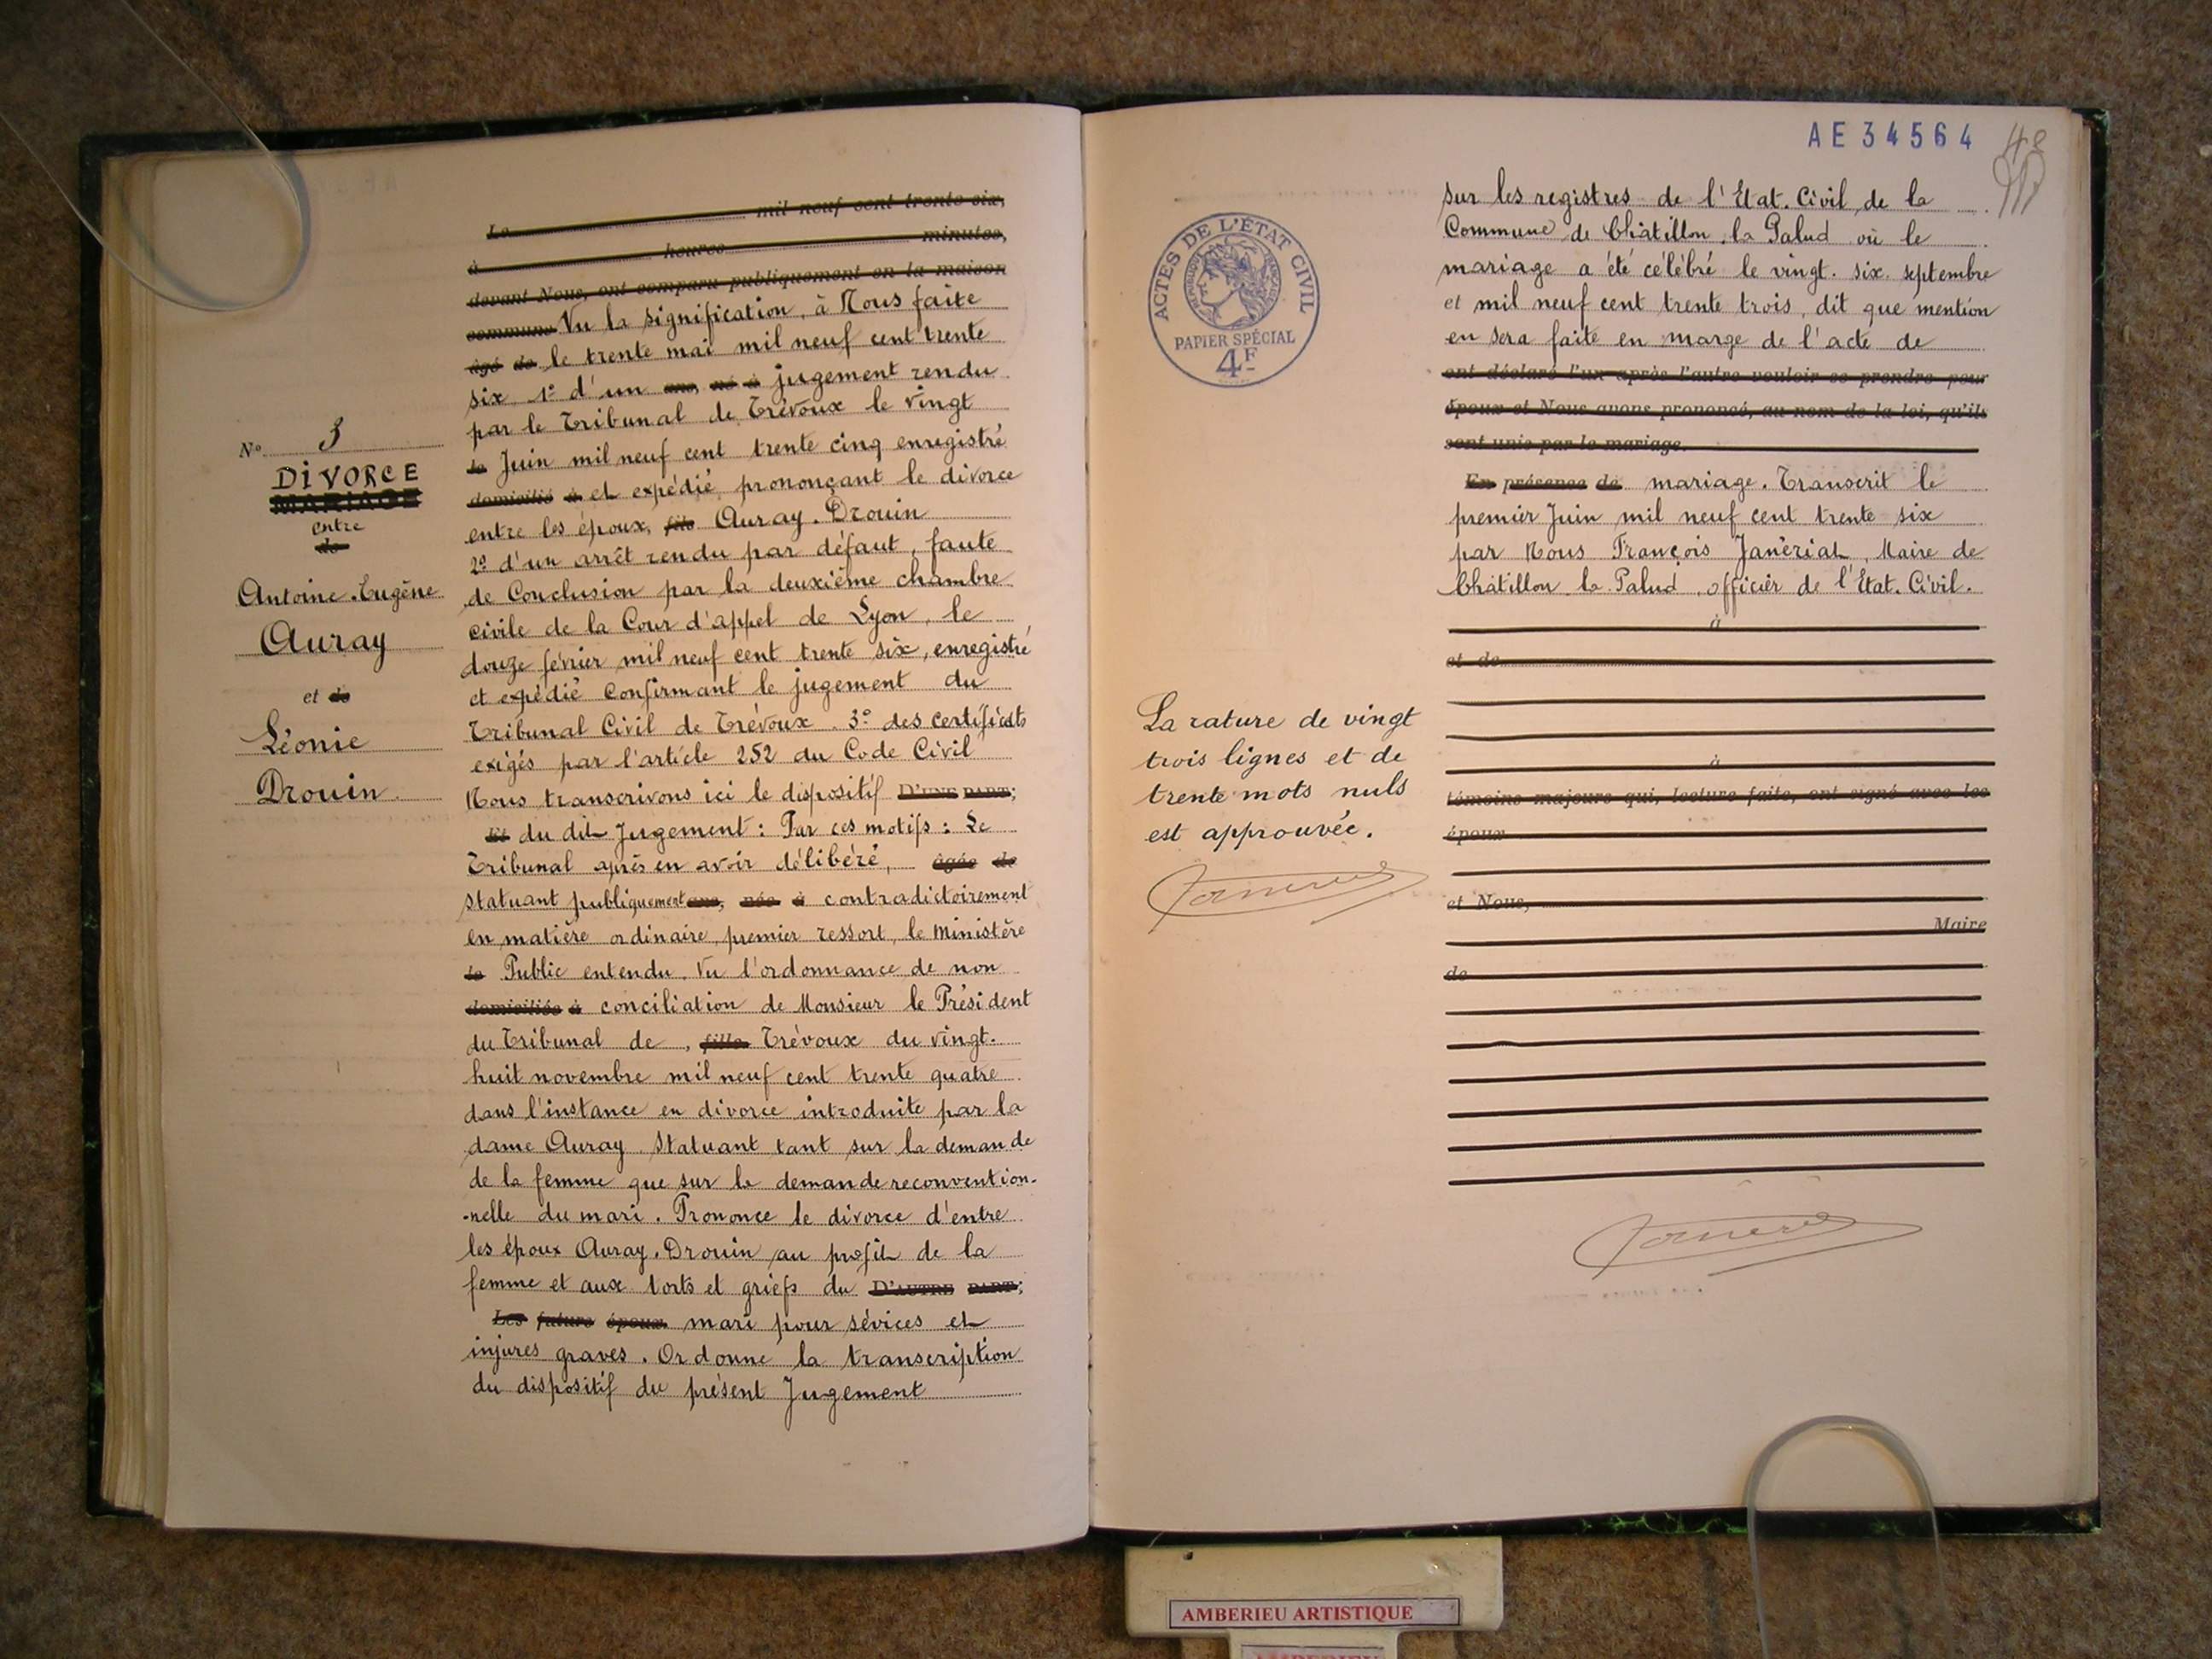 Le mil neuf cent trente-six,
à heures minutes,
devant Nous, ont comparu publiquement en la maison
commune Vu la signification, à Nous faite
âgé de le trente mai mil neuf cent trente
six 1º d'un ans, né à jugement rendu
par le Tribunal de Trévoux le vingt
le Juin mil neuf cent trente cinq enregistré
domicilié à et expédié, prononçant le divorce
entre les époux, fils Auray. Drouin
2º d'un arrêt rendu par défaut, faute
de Conclusion par la deuxième chambre
civile de la Cour d'appel de Lyon, le
douze février mil neuf cent trente six, enregistré
et expédié Confirmant le jugement du
Tribunal Civil de Trévoux. 3º des certificats
exigés par l'article 252 du Code Civil
Nous transcrivons ici le dispositif D'UNE PART;
Et du dit Jugement : Par ces motifs : Le
Tribunal après en avoir délibéré, âgée de
statuant publiquement ans, née à contradictoirement
en matière ordinaire, premier ressort, le ministère
le Public entendu. Vu l'ordonnance de non
domiciliée à conciliation de Monsieur le Président
du Tribunal de, fille Trévoux du vingt.
huit novembre mil neuf cent trente quatre
dans l'instance en divorce introduite par la
dame Auray. Statuant tant sur la demande
de la femme que sur la demande reconvention-
-nelle du mari. Prononce le divorce d'entre
les époux Auray. Drouin au profit de la
femme et aux torts et griefs du D'AUTRE PART;
Les futurs époux mari pour sévices et
injures graves. Ordonne la transcription
du dispositif du présent Jugement
Nº 5
DIVORCE
MARIAGE
entre
de
Antoine. Eugène
Auray
et de
Léonie
Drouin.
AE34564
48
sur les registres de l'Etat. Civil de la
Commune de Châtillon. la Palud où le
mariage a été célébré le vingt. six. septembre
et mil neuf cent trente trois, dit que mention
en sera faite en marge de l'acte de
ont déclaré l'un après l'autre vouloir se prendre pour
époux et Nous avons prononcé, au nom de la loi, qu'ils
sont unis par le mariage.
En présence de mariage. Transcrit le
premier Juin mil neuf cent trente six
par Nous François Janériat, Maire de
Châtillon. la. Palud, officier de l'Etat. Civil.
à
et de
à
témoins majeurs qui, lecture faite, ont signé avec les
époux
et Nous,
Maire
de
ACTES DE L'ÉTAT CIVIL
RÉPUBLIQUE FRANÇAISE
PAPIER SPÉCIAL
4F
La rature de vingt
trois lignes et de
trente mots nuls
est approuvée.
AMBERIEU ARTISTIQUE
AMBERIEU